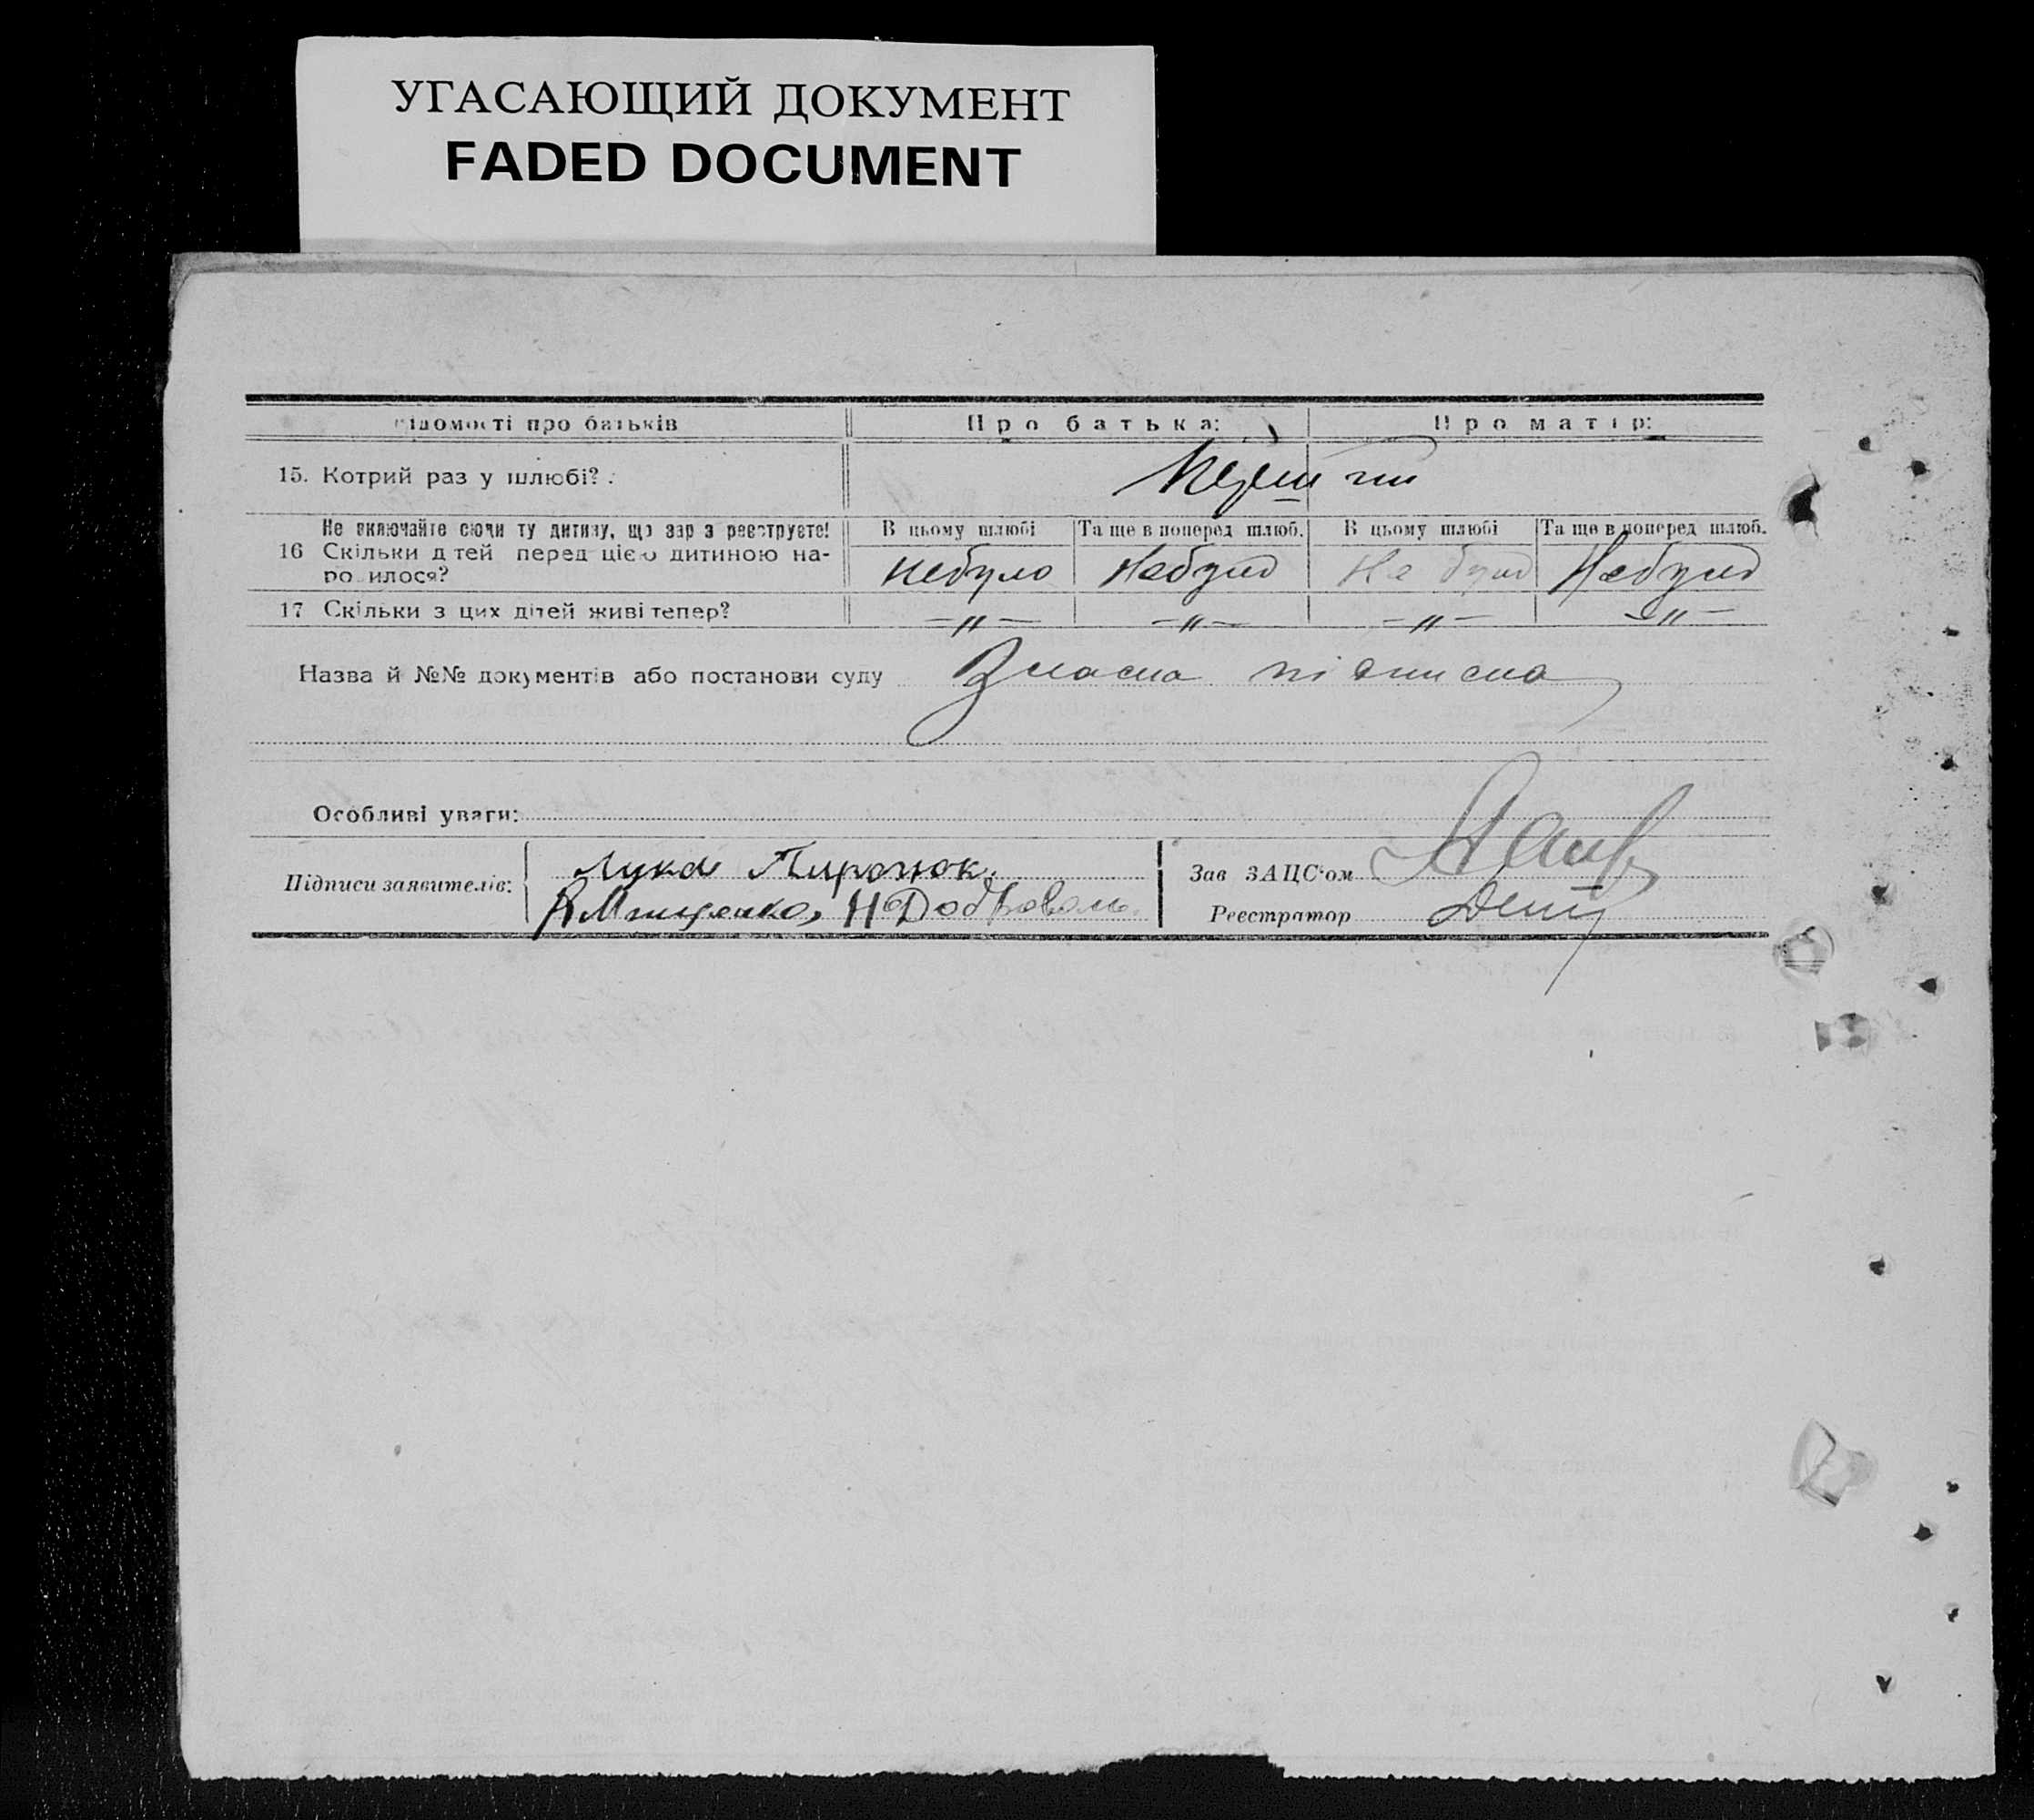 УГАСАЮЩИЙ ДОКУМЕНТ
FADED DOCUMENT
ідомості про батьків Про батька: Про матір:
15. Котрий раз у шлюбі?
Не включайте сюди ту дитину, що зар з реєструєте! В цьому шлюбі Та ще в поперед шлюб. В цьому шлюбі Та ще в поперед шлюб.
16 Скільки д тей перед цією дитиною на-
ро илося? Небуло Небуло Не було Небуло
17 Скільки з цих дітей живі тепер? -〃- -〃- -〃- -〃-
Назва й №№ документів або постанови суду Власна підписка
Особливі уваги:
Підписи заявителів: Лука
Зав ЗАЦС'ом
Реєстратор